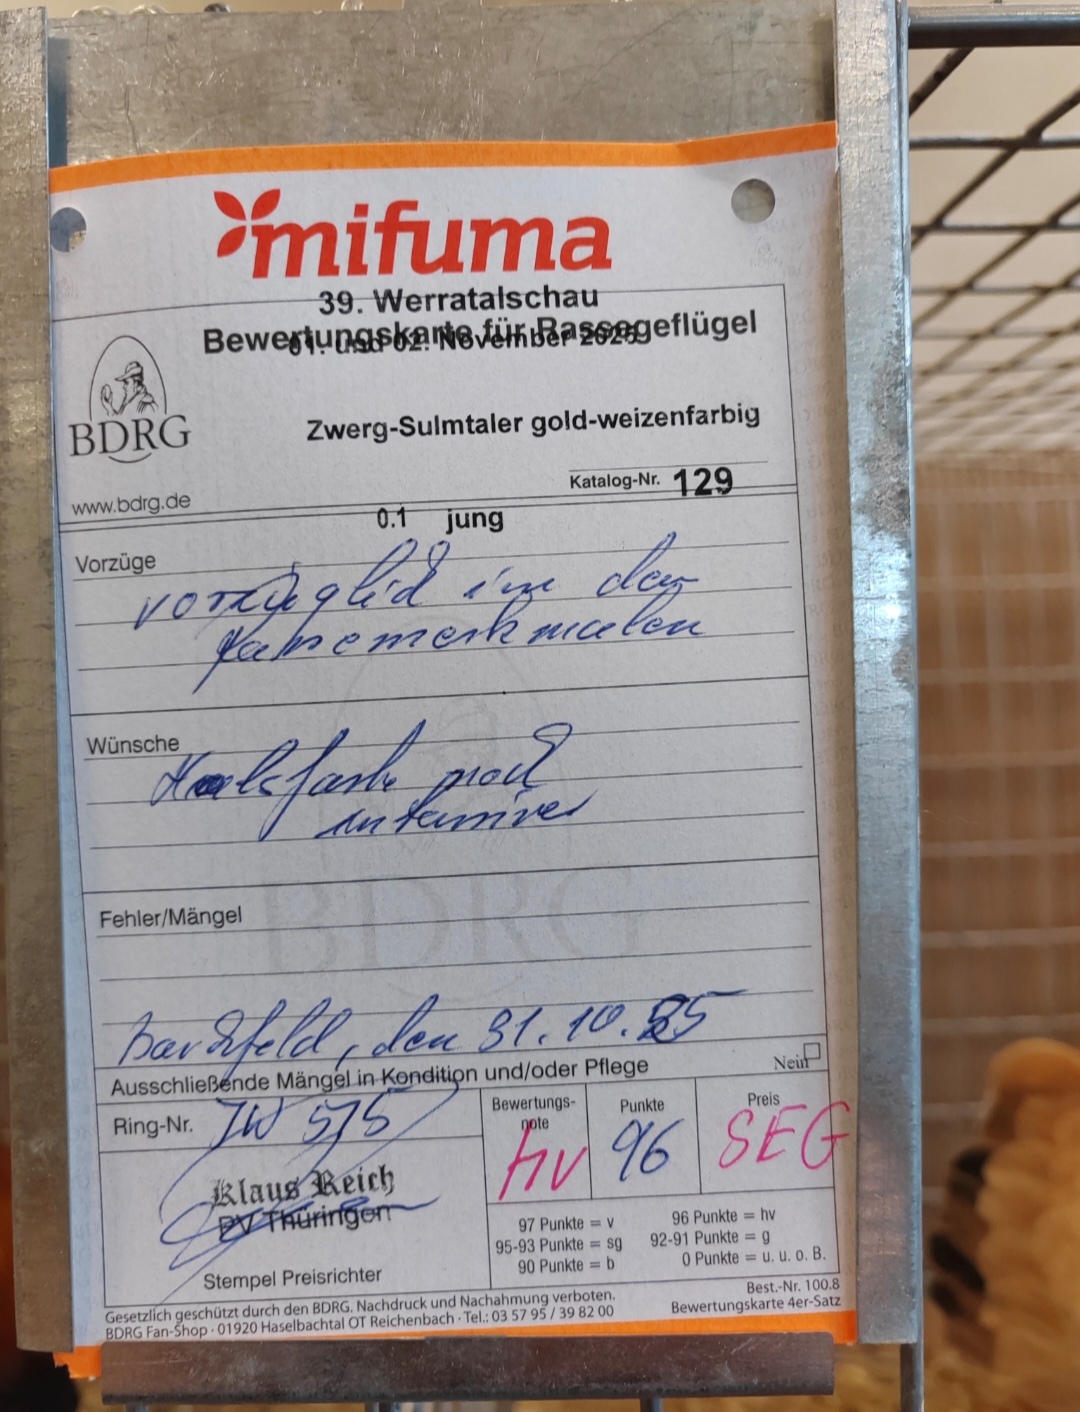 mifuma
39. Werratalschau
Bewertungskarte für Rassegeflügel
01. und 02. November 2025
BDRG
Zwerg-Sulmtaler gold-weizenfarbig
Katalog-Nr. 129
www.bdrg.de
0.1 jung
Vorzüge
vorzüglich in den
Rassemerkmalen
Wünsche
Halsfarbe noch
intensiver
BDRG
Fehler/Mängel
Barchfeld, den 31.10.25
Ausschließende Mängel in Kondition und/oder Pflege Nein
Ring-Nr. JW 575
Bewertungs-
note
hv
Punkte
96
Preis
SEG
Klaus Reich
PV Thüringen
Stempel Preisrichter
97 Punkte = v 96 Punkte = hv
95-93 Punkte = sg 92-91 Punkte = g
90 Punkte = b 0 Punkte = u. u. o. B.
Gesetzlich geschützt durch den BDRG. Nachdruck und Nachahmung verboten. Best.-Nr. 100.8
BDRG Fan-Shop · 01920 Haselbachtal OT Reichenbach · Tel.: 03 57 95 / 39 82 00 Bewertungskarte 4er-Satz